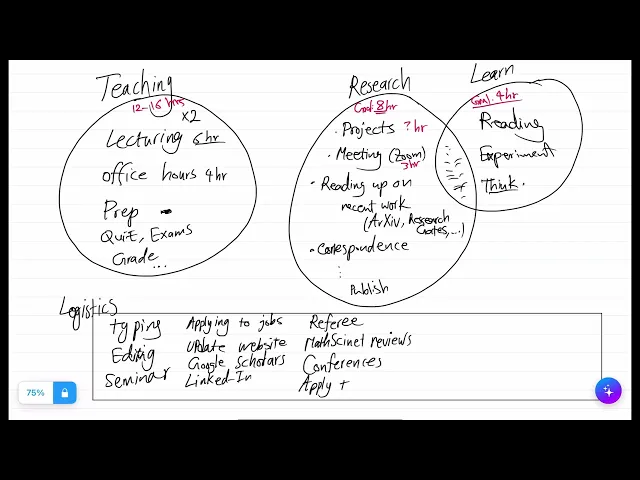 Teaching
12-16 hrs
x2
Lecturing 6hr
office hours 4hr
Prep -
Quiz, Exams
Grade...
Research
Goal: 8hr
· Projects ? hr
· Meeting (Zoom)
3hr
· Reading up on
recent work
(ArXiv, Research
Gates,...)
· Correspondence
Publish
Learn
Goal: 4hr
Reading
Experiment
Think.
Logistics
typing
Editing
Seminar
Applying to jobs
Update website
Google Scholars
Linked-In
Referee
MathScinet reviews
Conferences
Apply t
75%